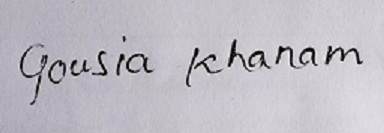 Gousia khanam